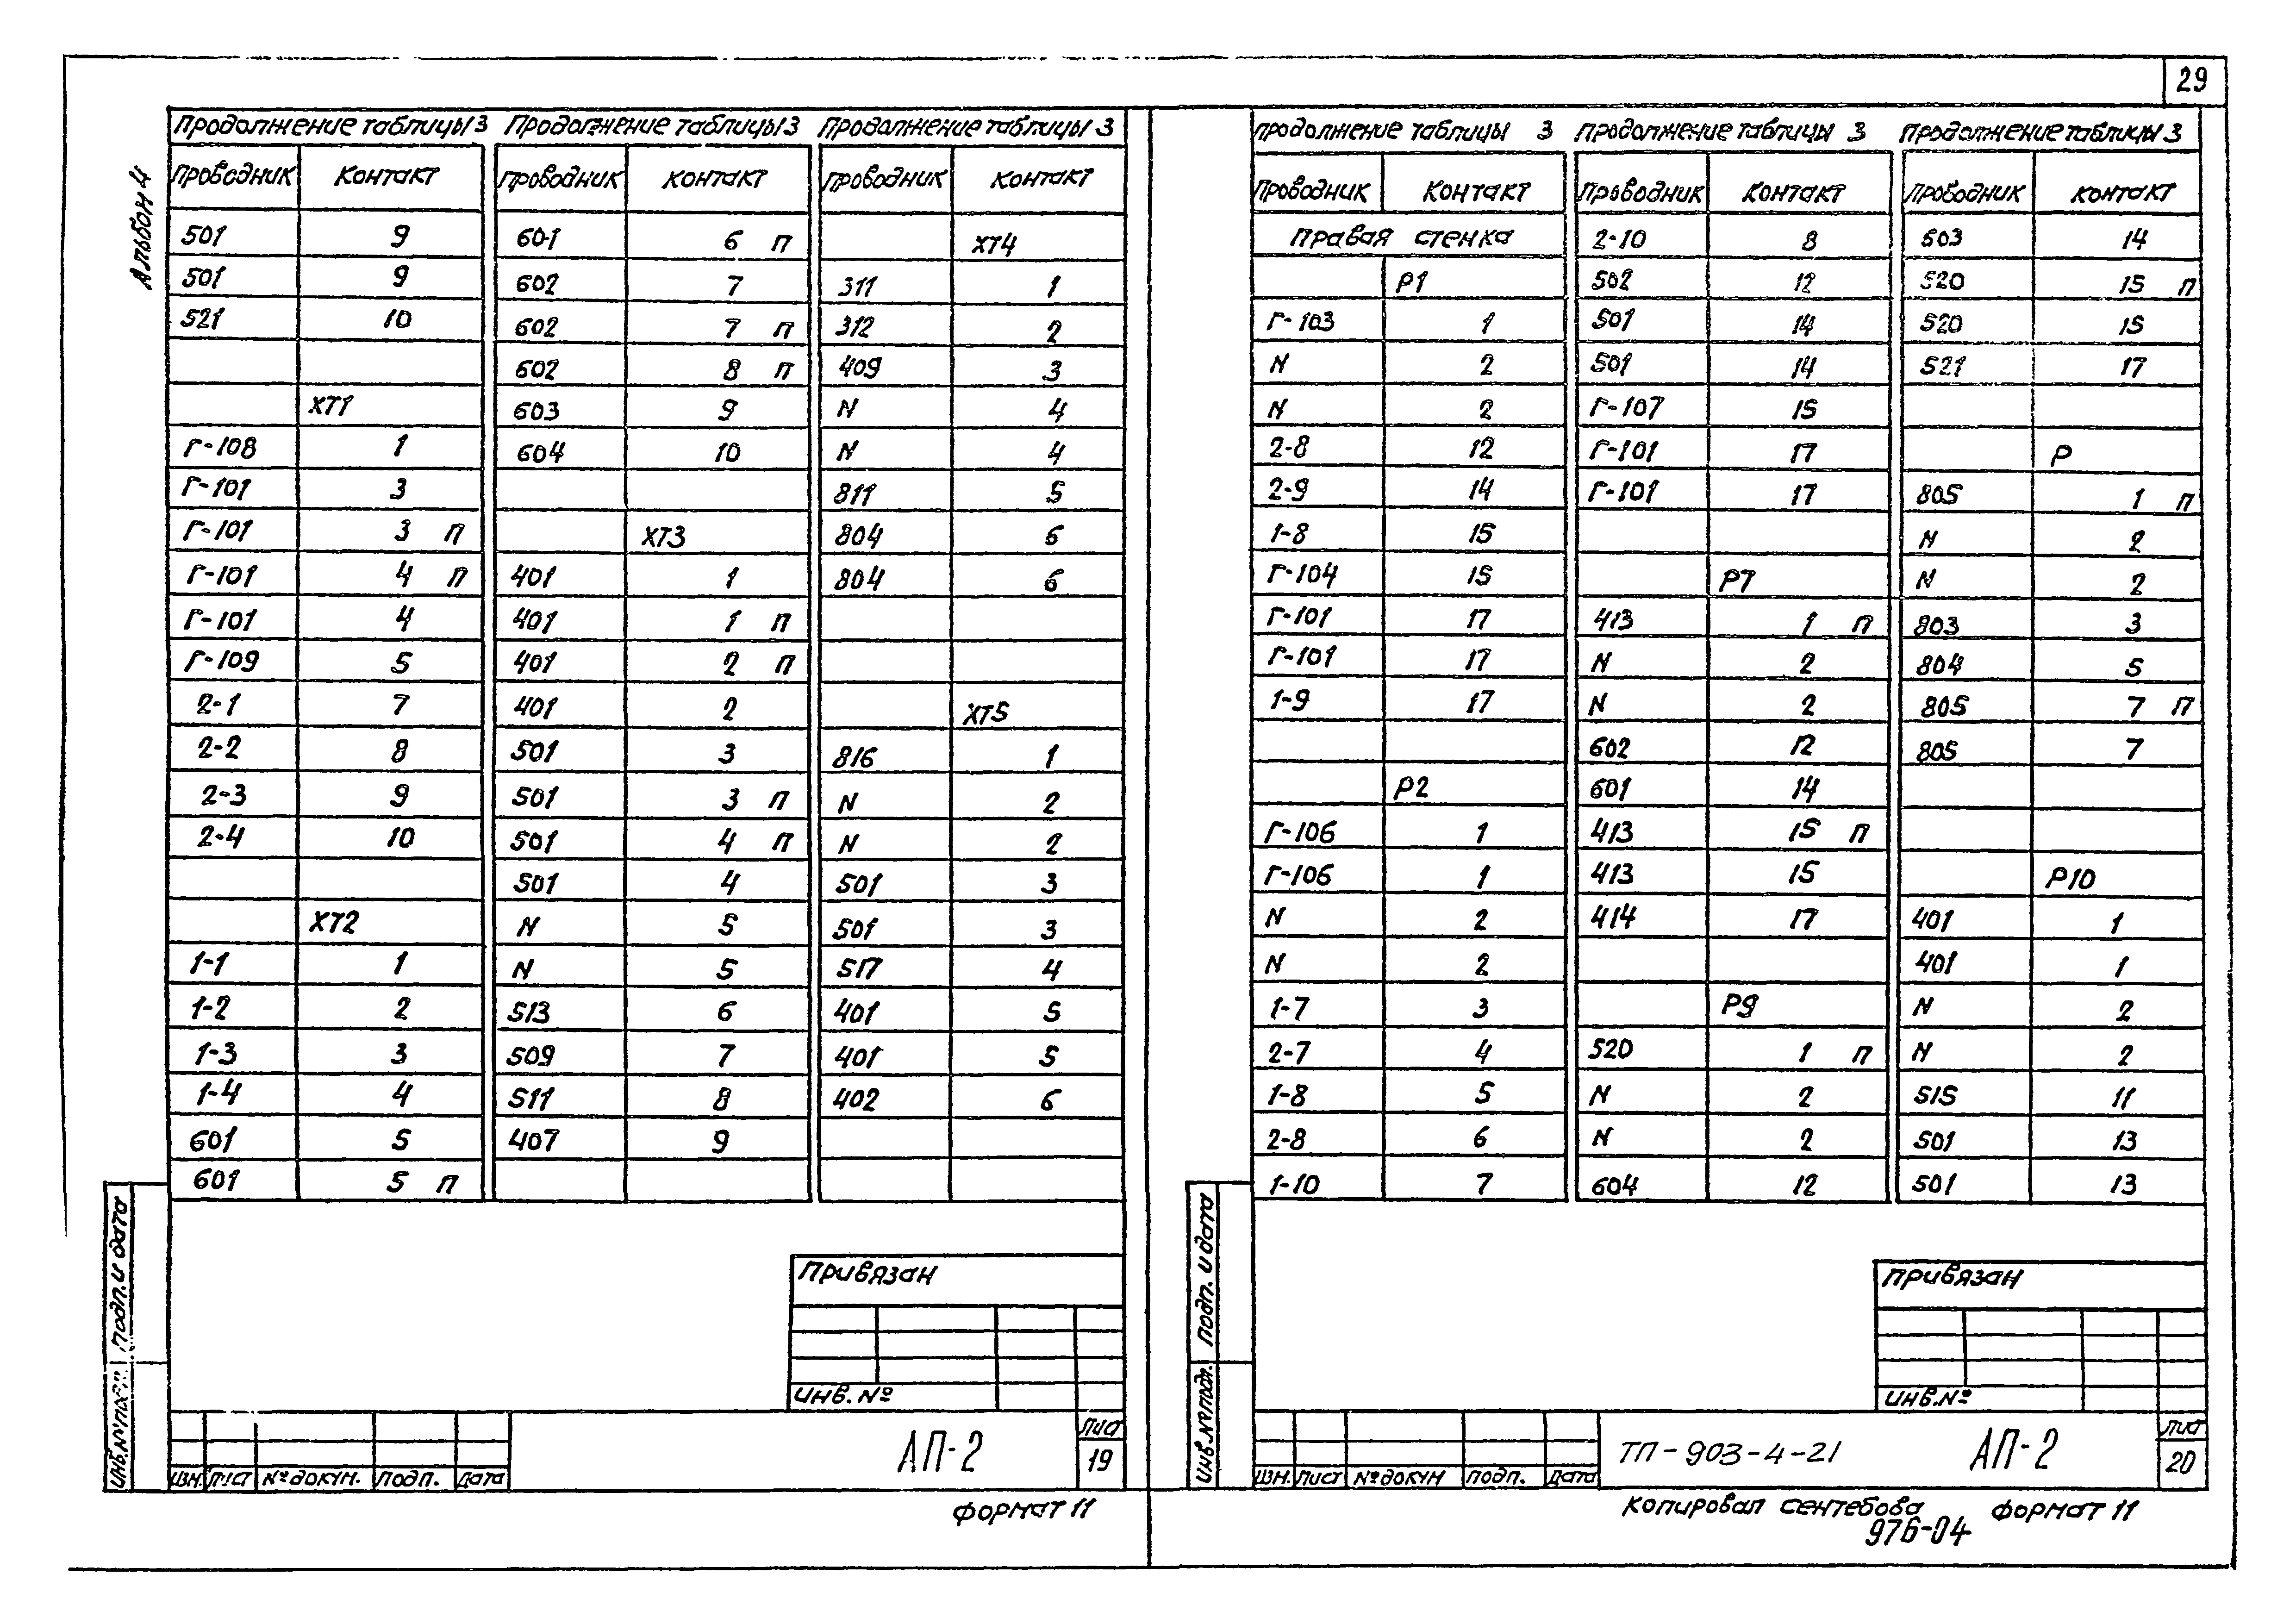 29
Альбом 4
Продолжение таблицы 3
Проводник Контакт
501 9
501 9
521 10
XT1
Г-108 1
Г-101 3
Г-101 3 п
Г-101 4 п
Г-101 4
Г-109 5
2-1 7
2-2 8
2-3 9
2-4 10
XT2
1-1 1
1-2 2
1-3 3
1-4 4
601 5
601 5 п
Продолжение таблицы 3
Проводник Контакт
601 6 п
602 7
602 7 п
602 8 п
603 9
604 10
XT3
401 1
401 1 п
401 2 п
401 2
501 3
501 3 п
501 4 п
501 4
N 5
N 5
513 6
509 7
511 8
407 9
Продолжение таблицы 3
Проводник Контакт
XT4
311 1
312 2
409 3
N 4
N 4
811 5
804 6
804 6
XT5
816 1
N 2
N 2
501 3
501 3
517 4
401 5
401 5
402 6
Привязан
Инв. №
Изм. Лист № докум. Подп. Дата
АП-2
Лист
19
Инв. № подл. Подп. и дата
Формат 11
Продолжение таблицы 3
Проводник Контакт
Правая стенка
P1
Г-103 1
N 2
N 2
2-8 12
2-9 14
1-8 15
Г-104 15
Г-101 17
Г-101 17
1-9 17
P2
Г-106 1
Г-106 1
N 2
N 2
1-7 3
2-7 4
1-8 5
2-8 6
1-10 7
Продолжение таблицы 3
Проводник Контакт
2-10 8
502 12
501 14
501 14
Г-107 15
Г-101 17
Г-101 17
P7
413 1 п
N 2
N 2
602 12
601 14
413 15 п
413 15
414 17
P9
520 1 п
N 2
N 2
604 12
Продолжение таблицы 3
Проводник Контакт
603 14
520 15 п
520 15
521 17
P
805 1 п
N 2
N 2
803 3
804 5
805 7 п
805 7
P10
401 1
401 1
N 2
N 2
515 11
501 13
501 13
Привязан
Инв. №
Изм. Лист № докум Подп. Дата
ТП-903-4-21
АП-2
Лист
20
Инв. № подл. Подп. и дата
Копировал Сентебова Формат 11
976-04